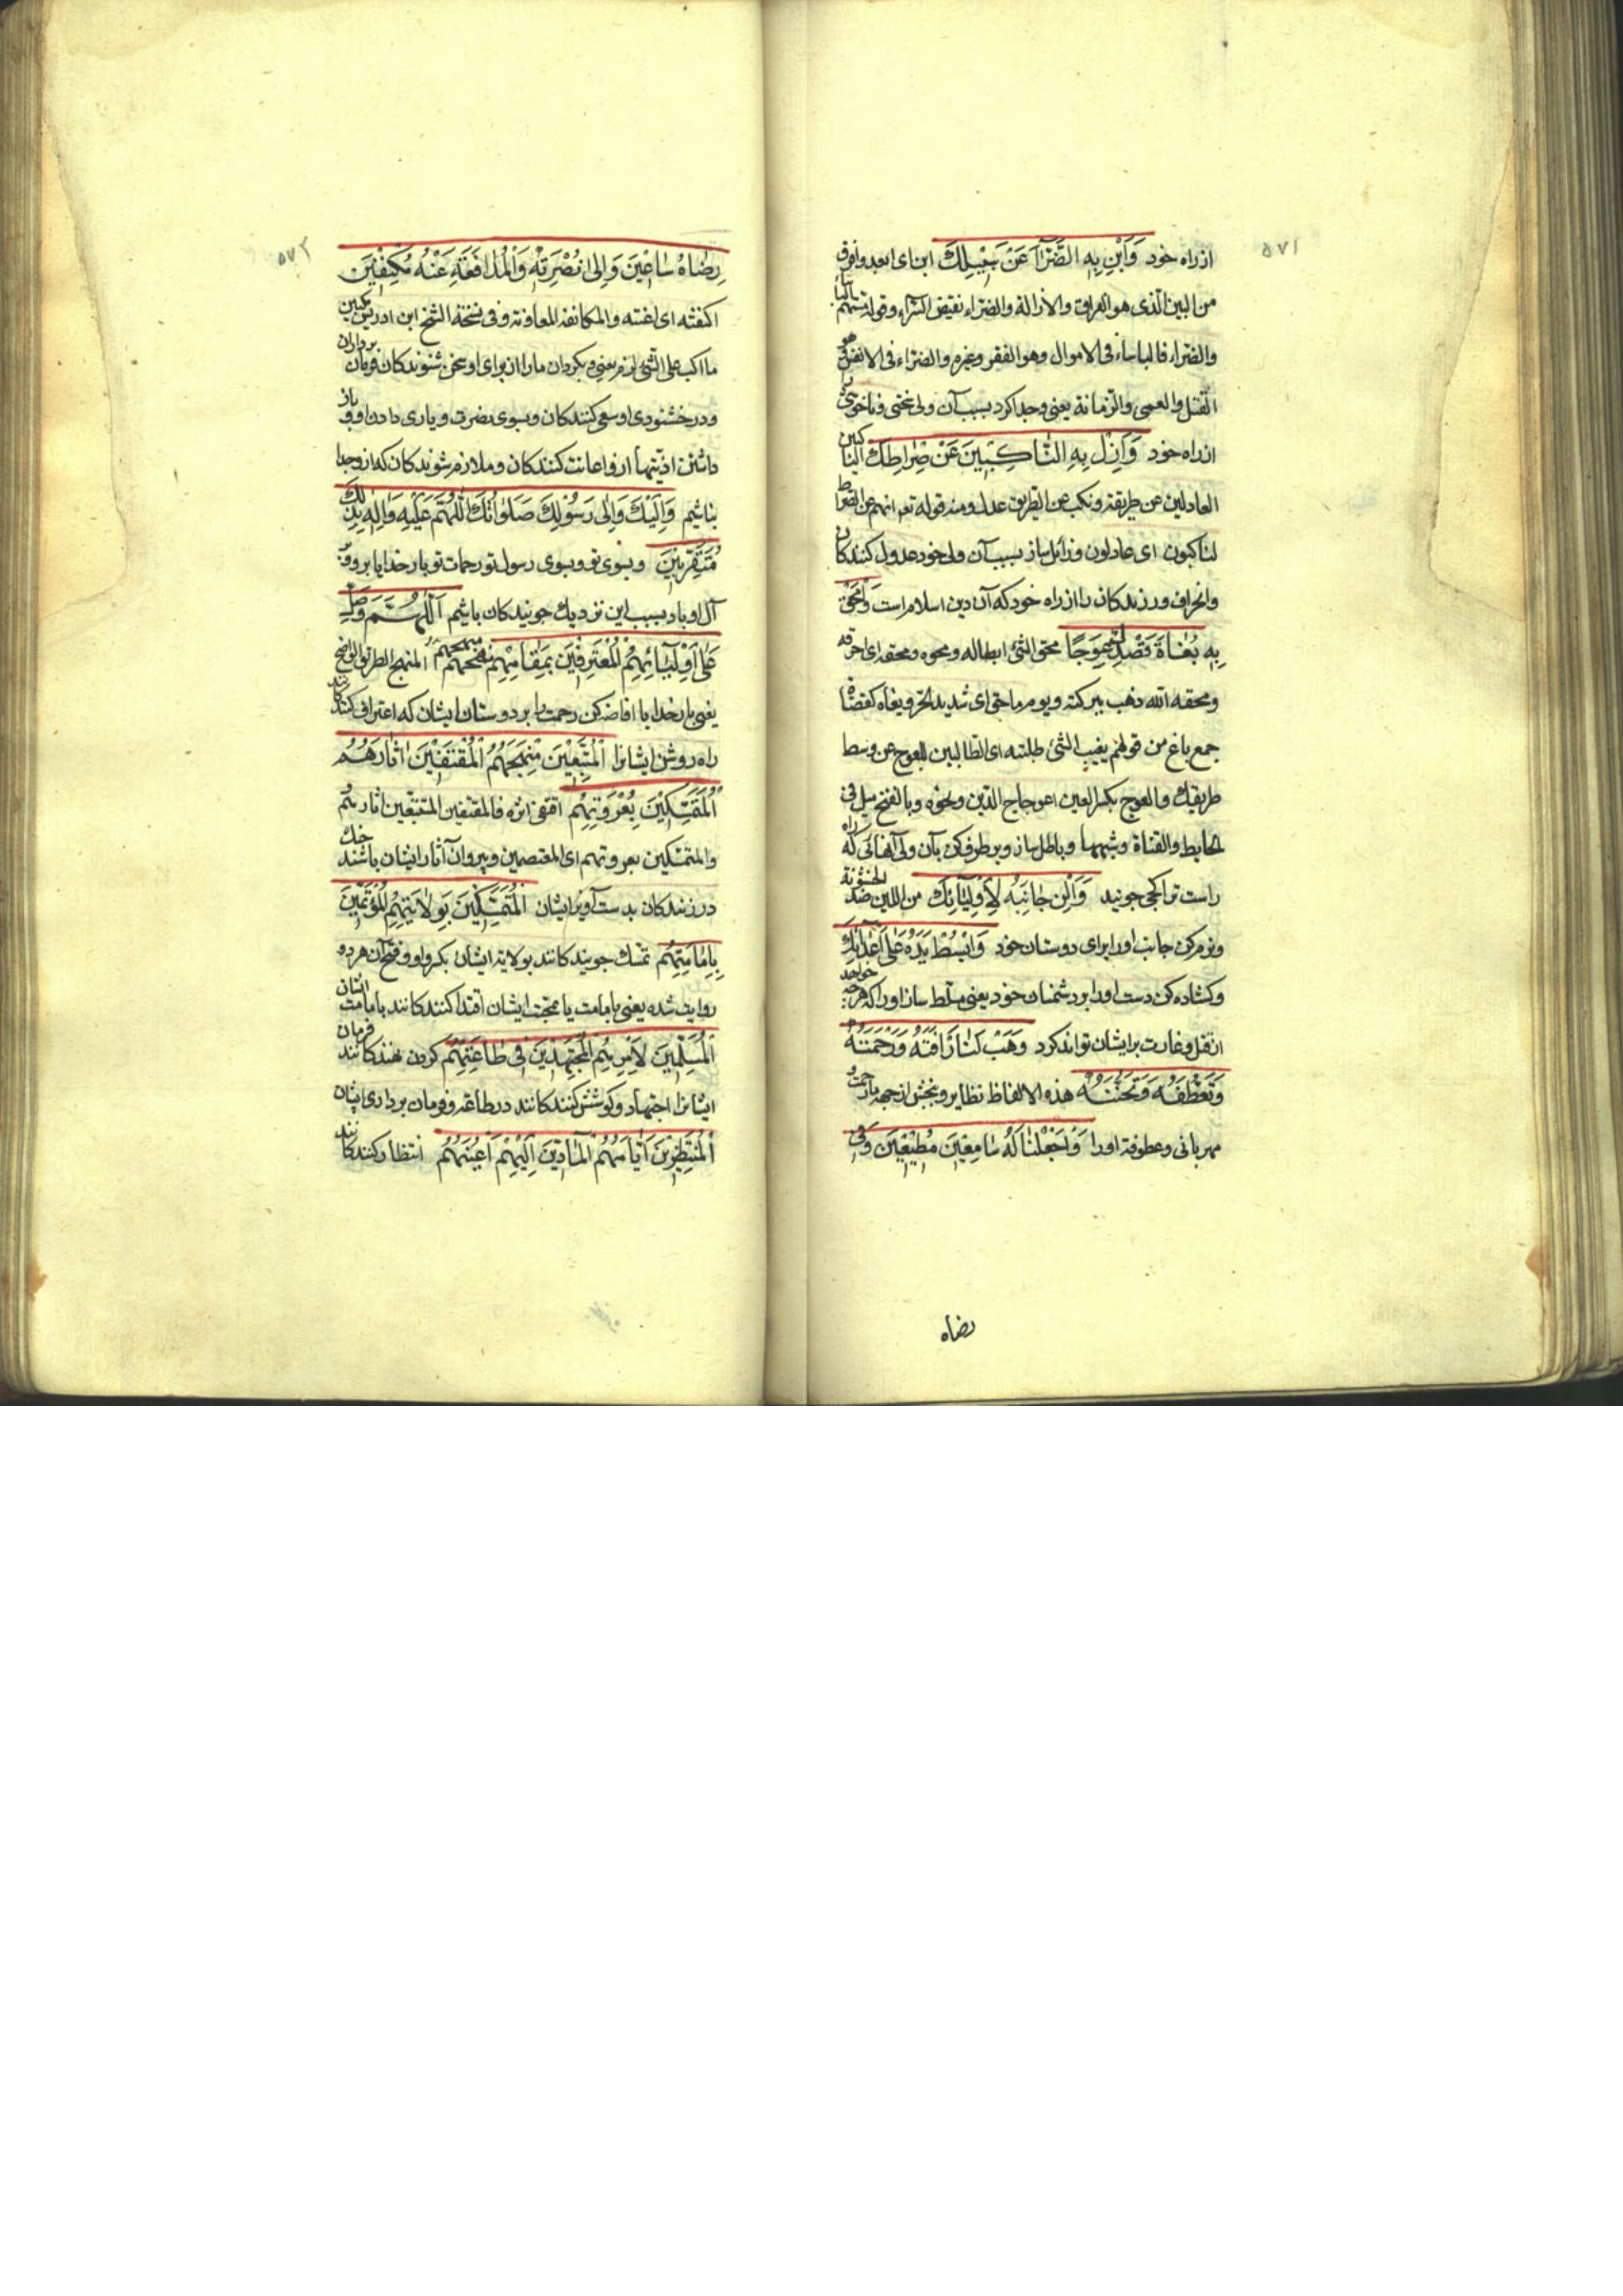 ۵۷۱
از راه خود وَاَبِنْ بِهِ الضَّرّآءَ عَنْ سَبِيْلِكَ ابن ای ابعد وافرق
من البین الّذی هو الفراق والازالة والضراء نقیض السّراء وقوله مستهم البأساء
والضراء فالباساء فی الاموال وهو الفقر وغیره والضراء فی الانفس هو
القتل والعمی والزمانة یعنی وجدا کرد بسبب آن ولی سختی وناخوشی را
از راه خود وَاَزِلْ بِهِ النّاكِبِيْنَ عَنْ صِرَاطِكَ الناکبین
العادلین عن طریقة ونکب عن الطریق عدل ومنه قوله تعه انهم عن الصراط
لناکبون ای عادلون وزائل ساز بسبب آن ولی خود عدول کنندکان
وانحراف ورزندکان را از راه خود که آن دین اسلام است وَامْحَقْ
بِهِ بُغَاةَ قَصْدِكَ عِوَجًا محق الشئ ابطاله ومحوه ومحقه ای احرقه
ومحقه الله ذهب ببرکته ویوم ماحق ای شدید الحرّ وبغاة کقضاة
جمع باغ من قولهم بغیت الشئ طلبته ای الطالبین للعوج عن وسط
طریقك والعوج بکسر العین اعوجاج الدّین ونحوه وبالفتح میل فی
الحایط والقناة وشبهها وباطل ساز وبرطرف کن بآن ولی آنهائی که راه
راست ترا کجی جویند وَاَلِنْ جَانِبَهُ لِاَوْلِيَآئِكَ من اللین ضد الخشونة
ونرم کن جانب او را برای دوستان خود وَابْسُطْ يَدَهُ عَلٰى اَعْدَآئِكَ
وکشاده کن دست او را بر دشمنان خود یعنی مسلط ساز او را که هرچه خواهد
از قتل وغارت بر ایشان تواند کرد وَهَبْ لَنَا رَاْفَتَهُ وَرَحْمَتَهُ
وَتَعَطُّفَهُ وَتَحَنُّنَهُ هذه الالفاظ نظایر وببخش از جهة ما رحمت و
مهربانی وعطوفة او را وَاجْعَلْنَا لَهُ سَامِعِيْنَ مُطِيْعِيْنَ وَفِيْ
رضاه
۵۷۲
رِضَاهُ سَاعِيْنَ وَاِلٰى نُصْرَتِهِ وَالْمُدَافَعَةِ عَنْهُ مُكْنِفِيْنَ
اکنفته ای اعنته والمکانفة المعاونة وفی نسخة الشیخ ابن ادریس مکبین
ما اکب علی الشئ لزمه یعنی وبکردان ما را از برای او سخن شنوندکان فرمان برداران
ودر خشنودی او سعی کنندکان وبسوی نصرت ویاری دادن او وباز
داشتن اذیتها از او اعانت کنندکان وملازم شوندکان که از او جدا
نباشیم وَاِلَيْكَ وَاِلٰى رَسُوْلِكَ صَلَوَاتُكَ اللّٰهُمَّ عَلَيْهِ وَاٰلِهِ بِذٰلِكَ
مُتَقَرِّبِيْنَ وبسوی تو وبسوی رسول تو رحمات تو بار خدایا بر او وبر
آل او باد بسبب این نزدیك جویندکان باشیم اَللّٰهُمَّ وَصَلِّ
عَلٰى اَوْلِيَآئِهِمُ الْمُعْتَرِفِيْنَ بِمَقَامِهِمْ منهجهم المنهج الطریق الواضح
یعنی بار خدایا افاضه کن رحمت را بر دوستان ایشان که اعتراف کنندکانند
راه روشن ایشانرا الْمُتَّبِعِيْنَ مَنْهَجَهُمُ الْمُقْتَفِيْنَ اٰثَارَهُمُ
الْمُتَمَسِّكِيْنَ بِعُرْوَتِهِمْ اقتفی اثره فالمقتفین المتتبعین آثارهم
والمتمسکین بعروتهم ای المعتصمین وپیروان آثار ایشان باشند چنك
در زنندکان بدست آویز ایشان الْمُتَمَسِّكِيْنَ بِوِلَايَتِهِمُ الْمُؤْتَمِّيْنَ
بِاِمَامَتِهِمْ تمسك جویندکانند بولایة ایشان بکسر واو وفتح آن هر دو
روایت شده یعنی بامامت یا محبّت ایشان اقتدا کنندکانند بامامت ایشان
الْمُسَلِّمِيْنَ لِاَمْرِهِمُ الْمُجْتَهِدِيْنَ فِيْ طَاعَتِهِمْ کردن نهندکانند فرمان
ایشانرا اجتهاد وکوشش کنندکانند در طاعة وفرمان برداری ایشان
الْمُنْتَظِرِيْنَ اَيَّامَهُمُ الْمَآدِّيْنَ اِلَيْهِمْ اَعْيُنَهُمُ انتظار کنندکانند